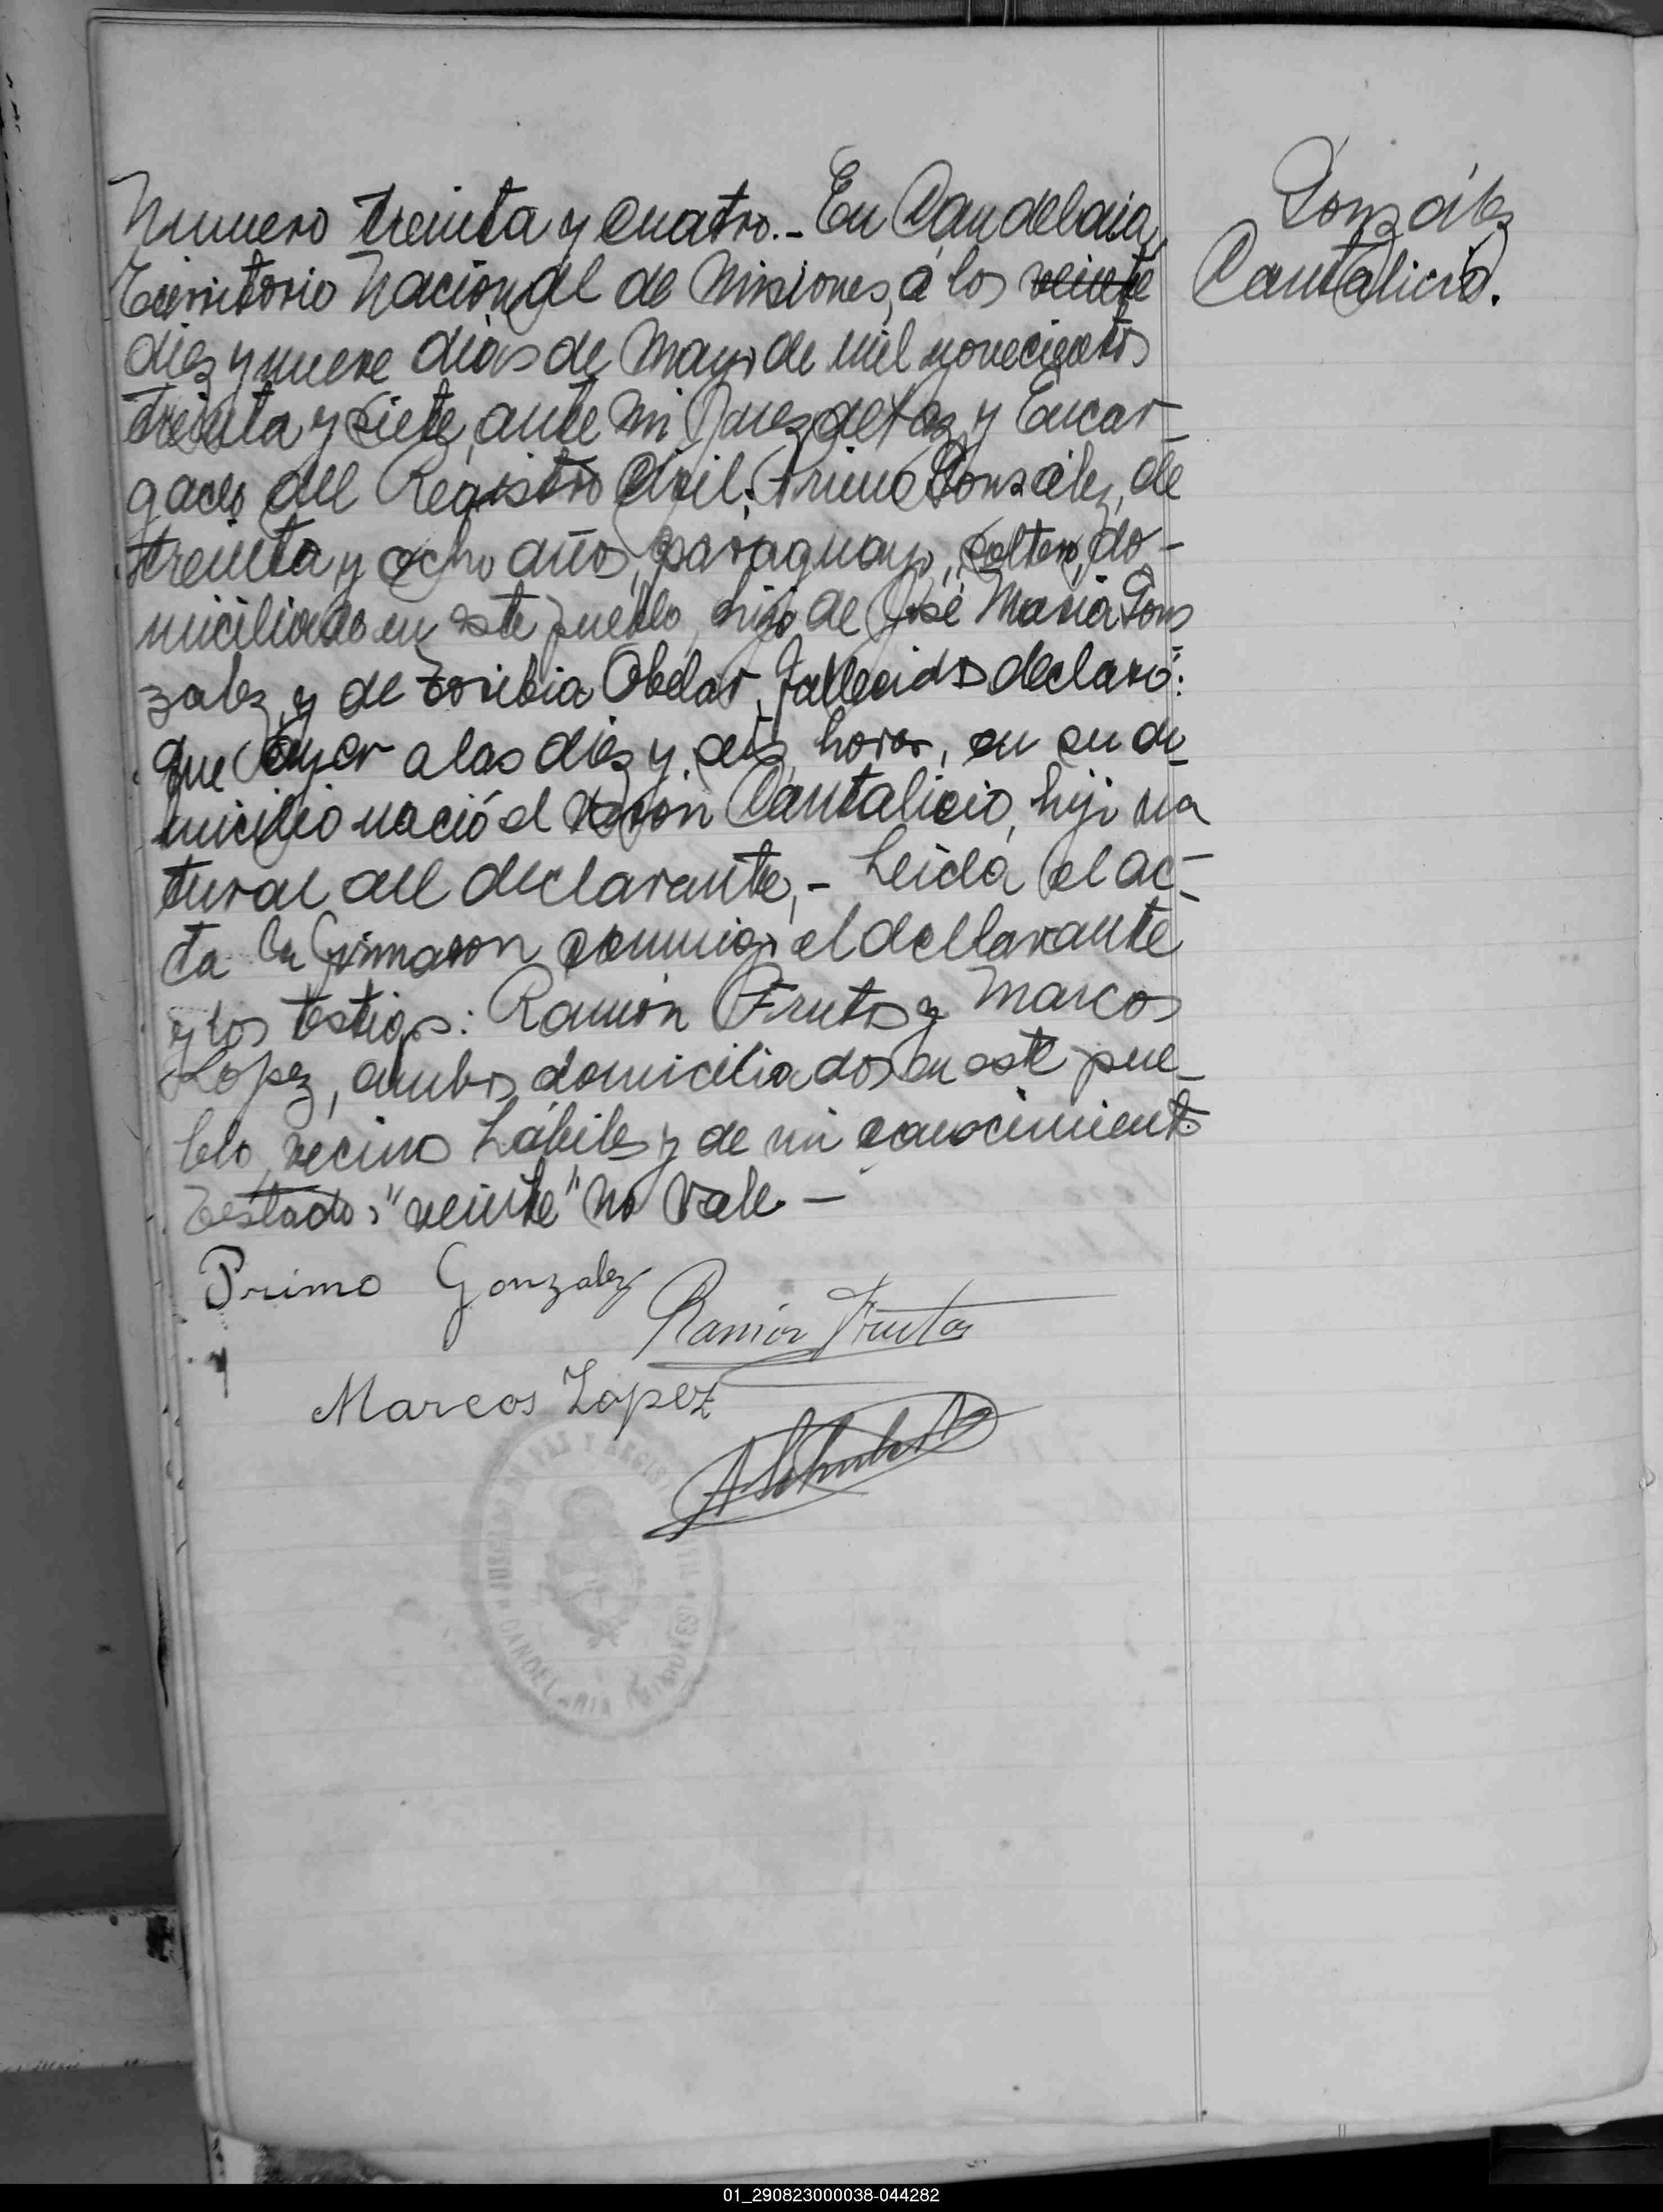 González
Cantalicio.
Numero treinta y cuatro.- En Candelaria,
Territorio Nacional de Misiones, á los veinte
diez y nueve días de Mayo de mil novecientos
treinta y siete, ante mi Juez de Paz y Encar-
gado del Registro Civil: Primo González, de
treinta y ocho años, paraguayo, soltero, do-
miciliado en este pueblo, hijo de José María Gon
zalez, y de Toribia Obelar, fallecidos declaró:
Que ayer a las diez y seis horas, en su do-
micilio nació el varon Cantalicio, hijo na
tural del declarante,- Leida el ac-
ta la firmaron conmigo el declarante
y los testigos: Ramón Frutos y Marcos
López, ambos domiciliados en este pue-
blo, vecinos hábiles y de mi conocimiento
Testado: "veinte" no vale.-
Primo Gonzalez
Ramón Frutos
Marcos Lopez
JUZGADO DE PAZ Y REGISTRO CIVIL
CANDELARIA (MISIONES)
01_290823000038-044282